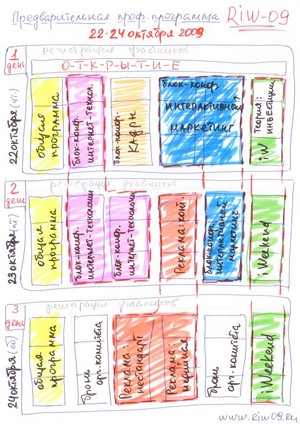 Предварительная проф. программа RiW-09
22-24 октября 2009
1 день
регистрация участников
О-Т-К-Р-Ы-Т-И-Е
22 октября (чт)
общая программа
блок-конф. интернет-технол.
блок-конф. Кадры
блок-конф. интерактивный маркетинг
Теория: инвестиции
iW
2 день
регистрация участников
23 октября (пт)
общая программа
блок-конф. интернет-технологии
блок-конф. интернет-технологии
Реклама:
блок-конф. интерактивный маркетинг
i Weekend
3 день
регистрация участников
24 октября (сб)
общая программа
брони орг. комитета
Реклама нестандарт
Реклама:
брони орг. комитета
i Weekend
www.riw09.ru